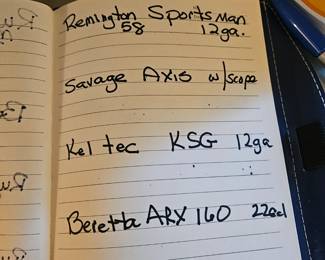 Remington Sportsman
58 12ga.
Savage Axis w/scope
Kel tec KSG 12ga
Beretta ARX 160 22cal